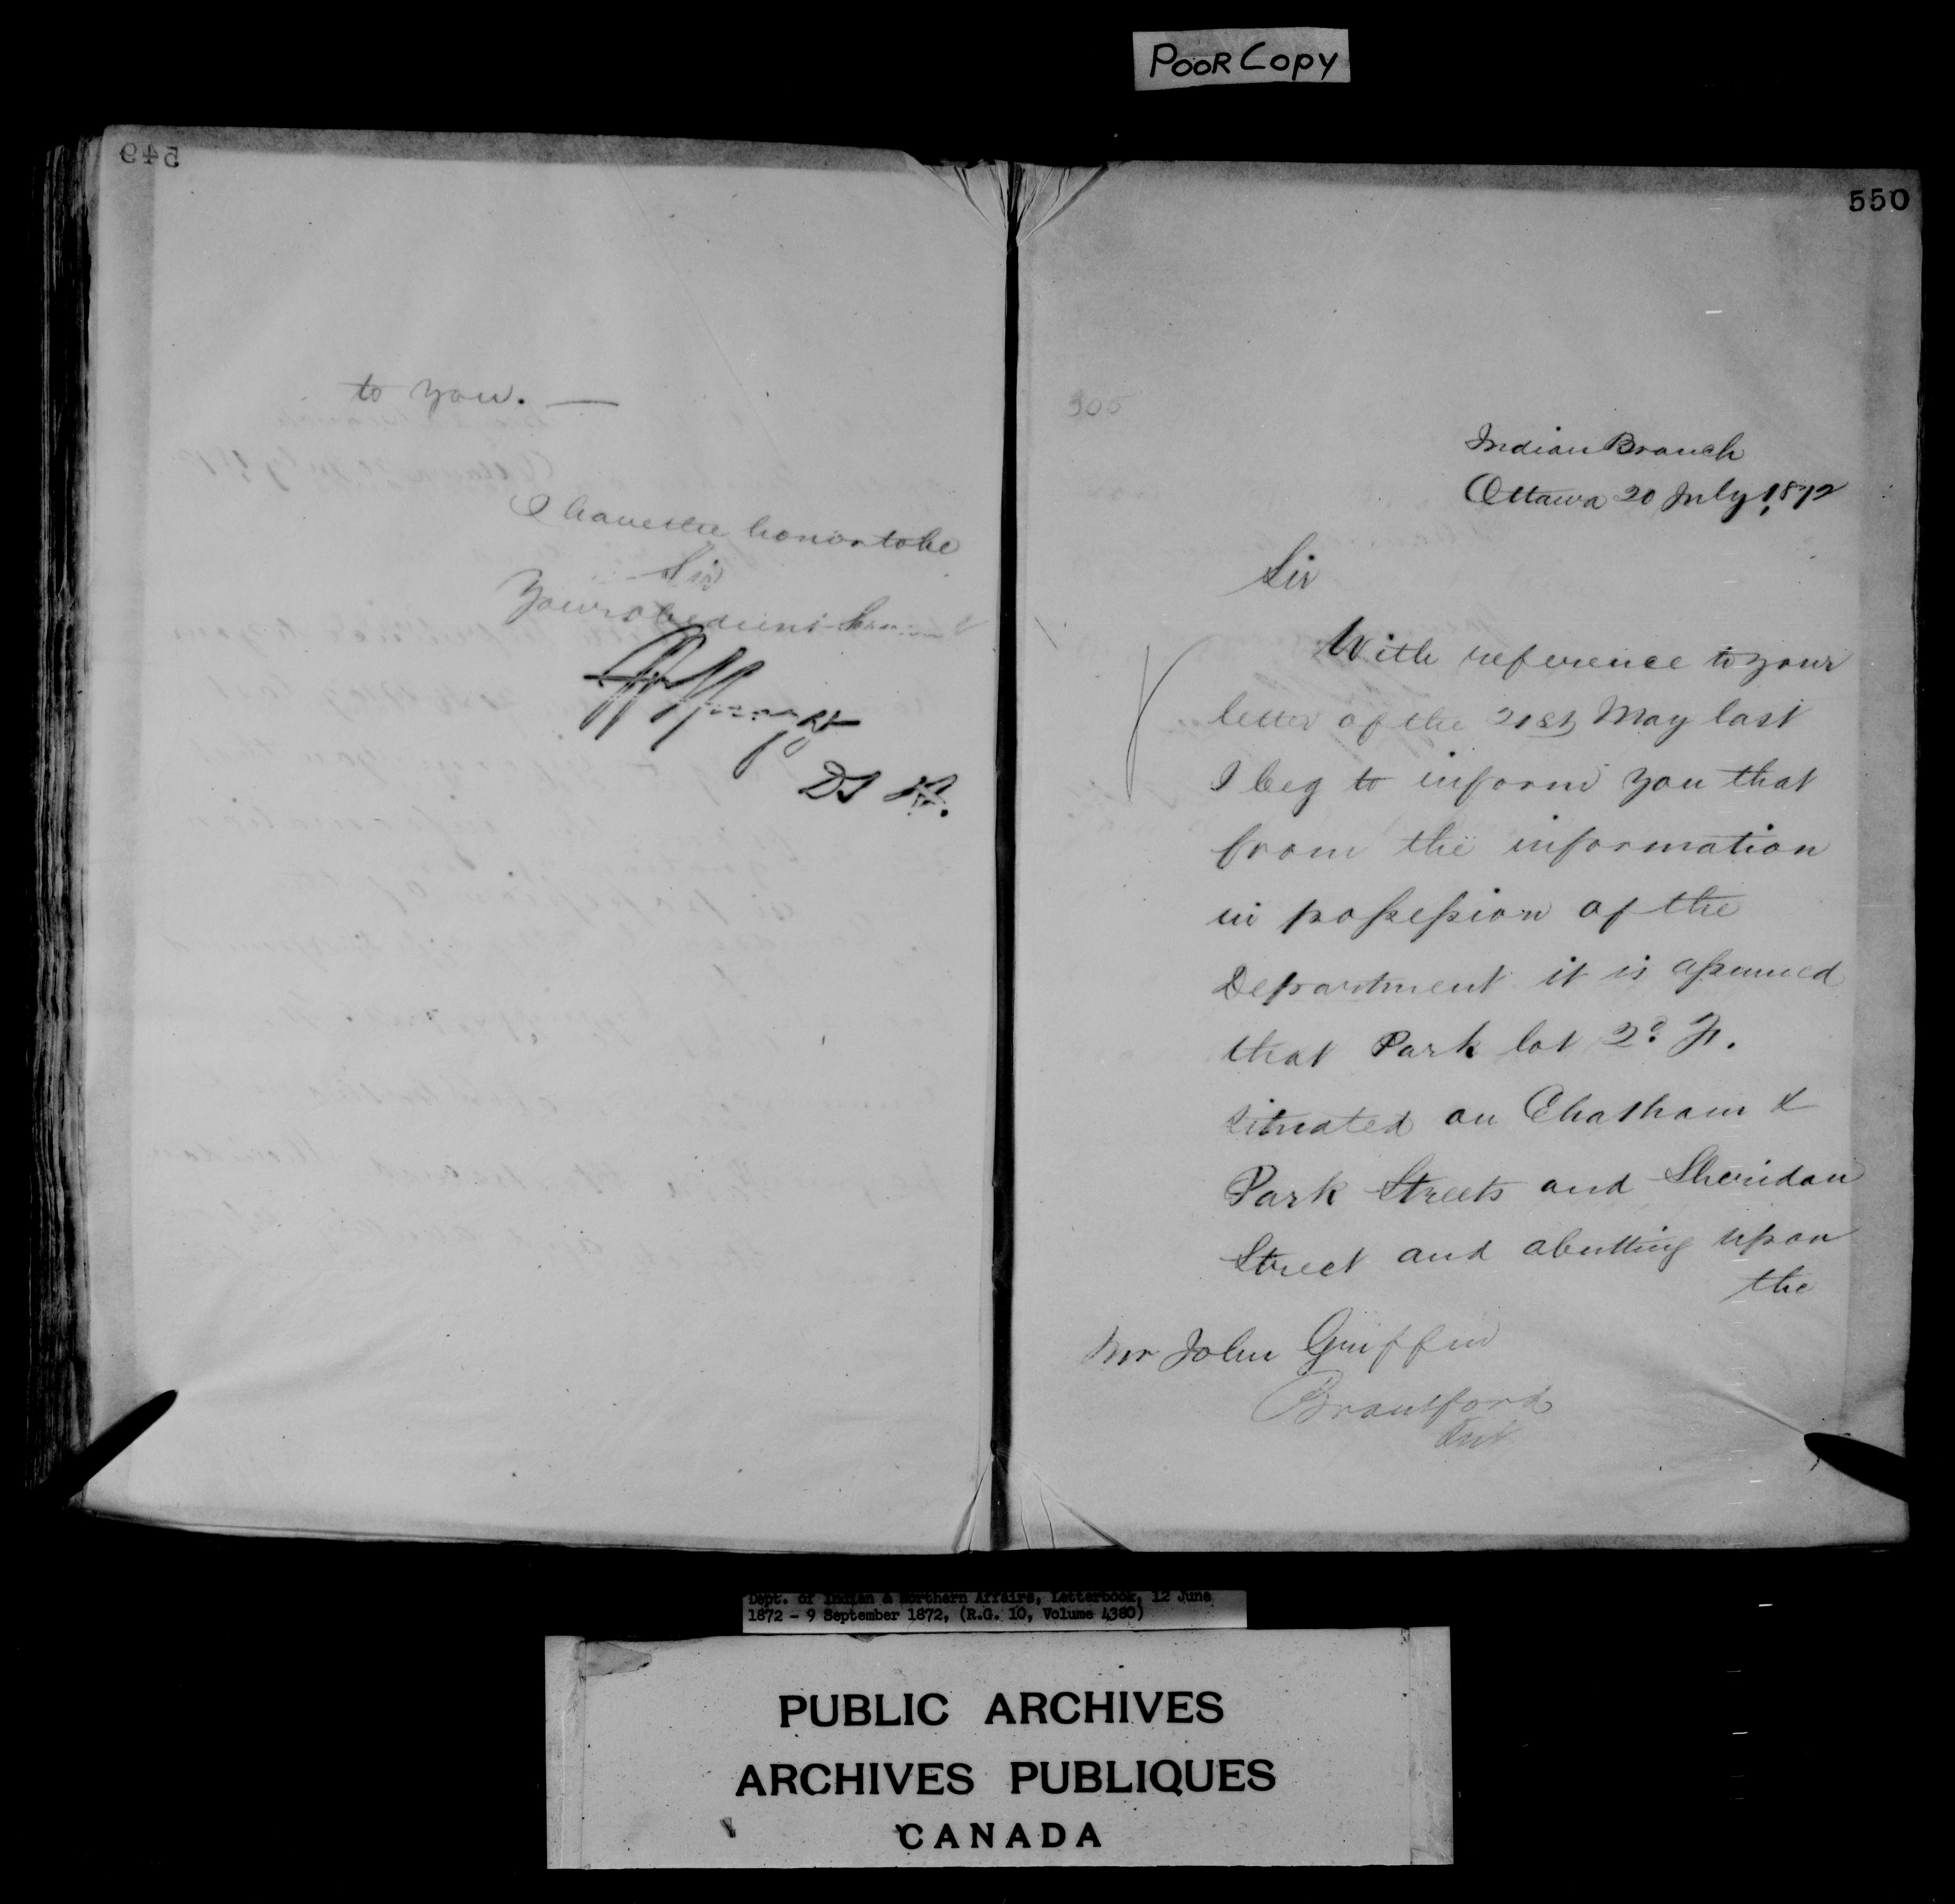 POOR COPY
549
to you. —
I have the honor to be
Sir
Your obedient Servant
DS
550
305
Indian Branch
Ottawa 20 July 1872
Sir
With reference to your
letter of the 21st May last
I beg to inform you that
from the information
in possession of the
Department it is assumed
that Park lot 2
situated on Chatham &
Park Streets and Sheridan
Street and abutting upon
the
Mr John Griffin
Brantford
Ont
Dept. of Indian & Northern Affairs, Letterbook, 12 June
1872 - 9 September 1872, (R.G. 10, Volume 4380)
PUBLIC ARCHIVES
ARCHIVES PUBLIQUES
CANADA